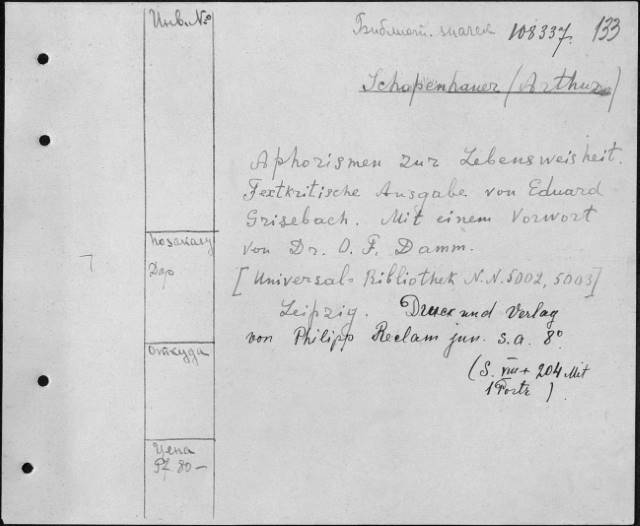 Инв. №
Библиот. значек 108337. 133
Schopenhauer (Arthur)
Aphorismen zur Lebensweisheit.
Textkritische Ausgabe von Eduard
Grisebach. Mit einem Vorwort
von Dr. O. F. Damm.
[Universal-Bibliothek N.N. 5002, 5003]
Leipzig. Druck und Verlag
von Philipp Reclam jun. s.a. 8°
(S. VIII + 204 Mit
1 Portr)
По заказу
Дар
Откуда
Цена
Pf. 80 —